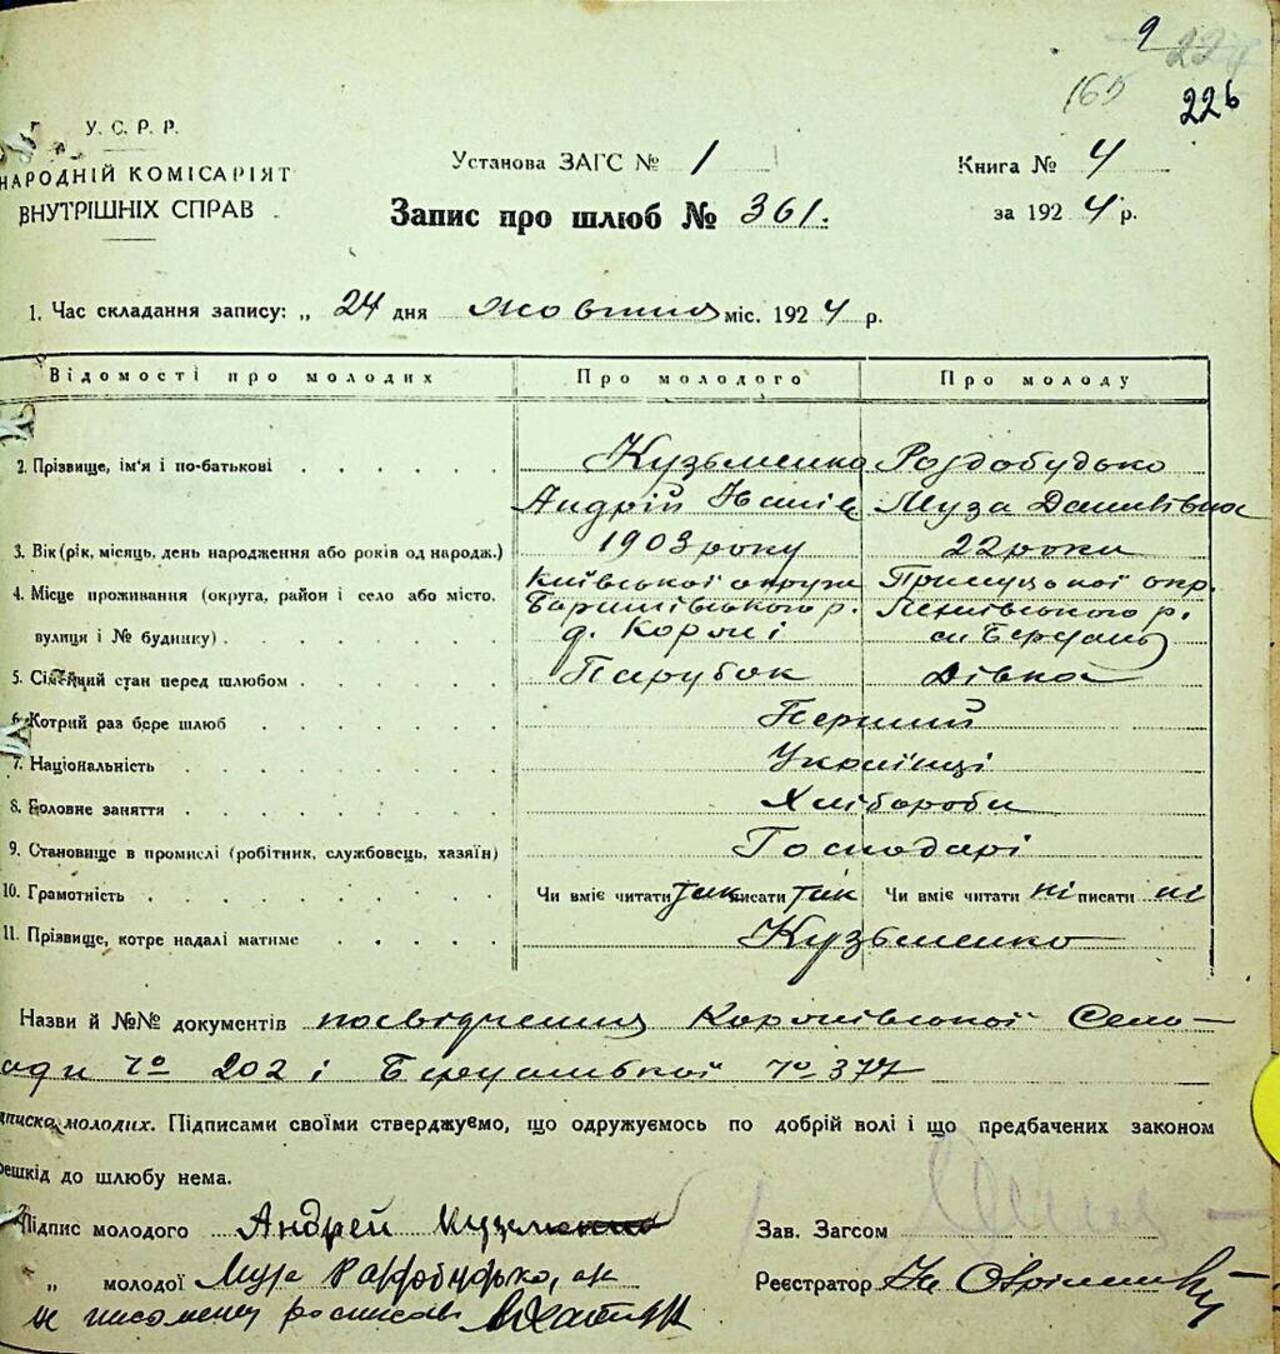 9 224
165 226
У. С. Р. Р.
НАРОДНІЙ КОМІСАРІЯТ
ВНУТРІШНІХ СПРАВ
Установа ЗАГС № 1
Книга № 4
Запис про шлюб № 361.
за 1924 р.
1. Час складання запису: „ 24 дня жовтня міс. 1924 р.
Відомості про молодих Про молодого Про молоду
2. Прізвище, ім'я і по-батькові Кузьменко Роздобудько
Андрій Іванів Муза Данилівна
3. Вік (рік, місяць, день народження або років од народж.) 1903 року 22 роки
4. Місце проживання (округа, район і село або місто, Київської округи Прилуцької окр.
Баришівського р.
вулиця і № будинку) с. Березань
5. Сімейний стан перед шлюбом Парубок Дівка
6. Котрий раз бере шлюб Перший
7. Національність Українці
8. Головне заняття Хлібороби
9. Становище в промислі (робітник, службовець, хазяїн) Господарі
10. Грамотність Чи вміє читати так писати так Чи вміє читати ні писати ні
11. Прізвище, котре надалі матиме Кузьменко
Назви й №№ документів посвідчення Корніївської Село-
ади № 202 і Березанської № 377
дписка молодих. Підписами своїми стверджуємо, що одружуємось по добрій волі і що предбачених законом
решкід до шлюбу нема.
Підпис молодого Андрей Кузменко
Зав. Загсом
„ молодої Муза Раздобудько, а за
Реєстратор
не письмену росписавс